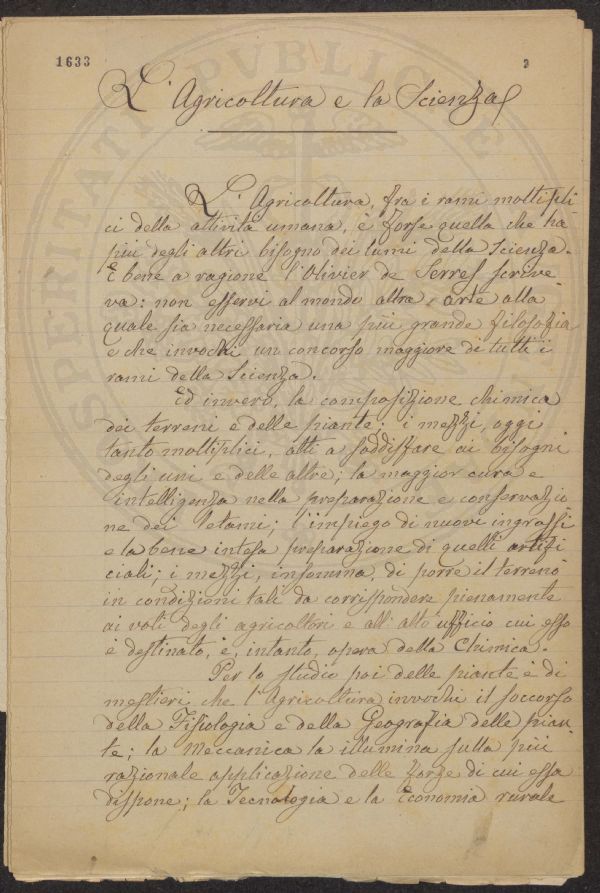 1633
L'Agricoltura e la Scienza
L'Agricoltura, fra i rami moltipli
ci della attività umana, è forse quella che ha
più degli altri bisogno dei lumi della Scienza.
E bene a ragione l'Olivier de Serres scrive
va: non esservi al mondo altra arte alla
quale sia necessaria una più grande filosofia
e che invochi un concorso maggiore di tutti i
rami della Scienza.
Ed invero, la composizione chimica
dei terreni e delle piante; i mezzi, oggi
tanto moltiplici, atti a soddisfare ai bisogni
degli uni e delle altre; la maggior cura e
intelligenza nella preparazione e conservazio
ne dei letami; l'impiego di nuovi ingrassi
e la bene intesa preparazione di quelli artifi
ciali; i mezzi, insomma, di porre il terreno
in condizioni tali da corrispondere pienamente
ai voti degli agricoltori e all'alto ufficio cui esso
è destinato, è, intanto, opera della Chimica.
Per lo studio poi delle piante è di
mestieri che l'Agricoltura invochi il soccorso
della Fisiologia e della Geografia delle pian
te; la Meccanica la illumina sulla più
razionale applicazione delle forze di cui essa
dispone; la Tecnologia e la Economia rurale